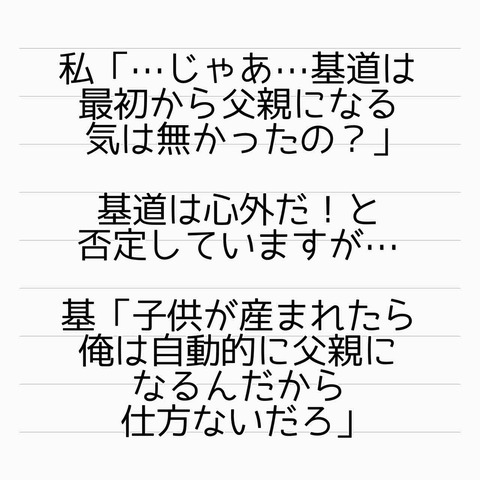 私「…じゃあ…基道は
最初から父親になる
気は無かったの？」
基道は心外だ！と
否定していますが…
基「子供が産まれたら
俺は自動的に父親に
なるんだから
仕方ないだろ」